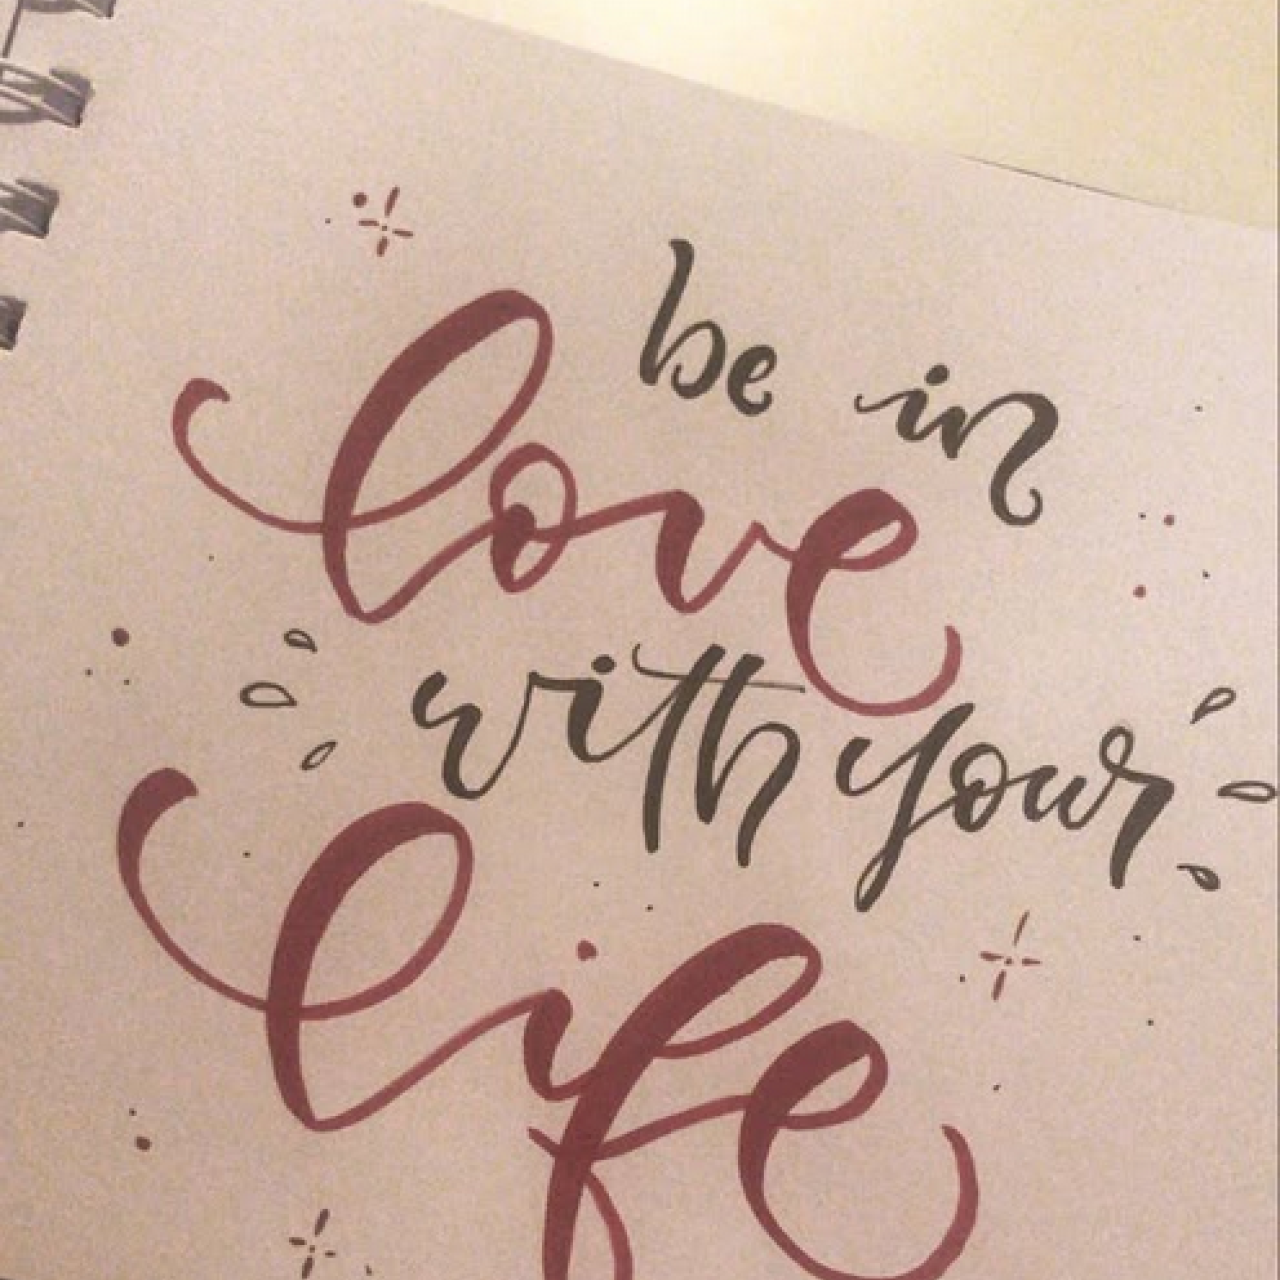 be in
love
with your
life